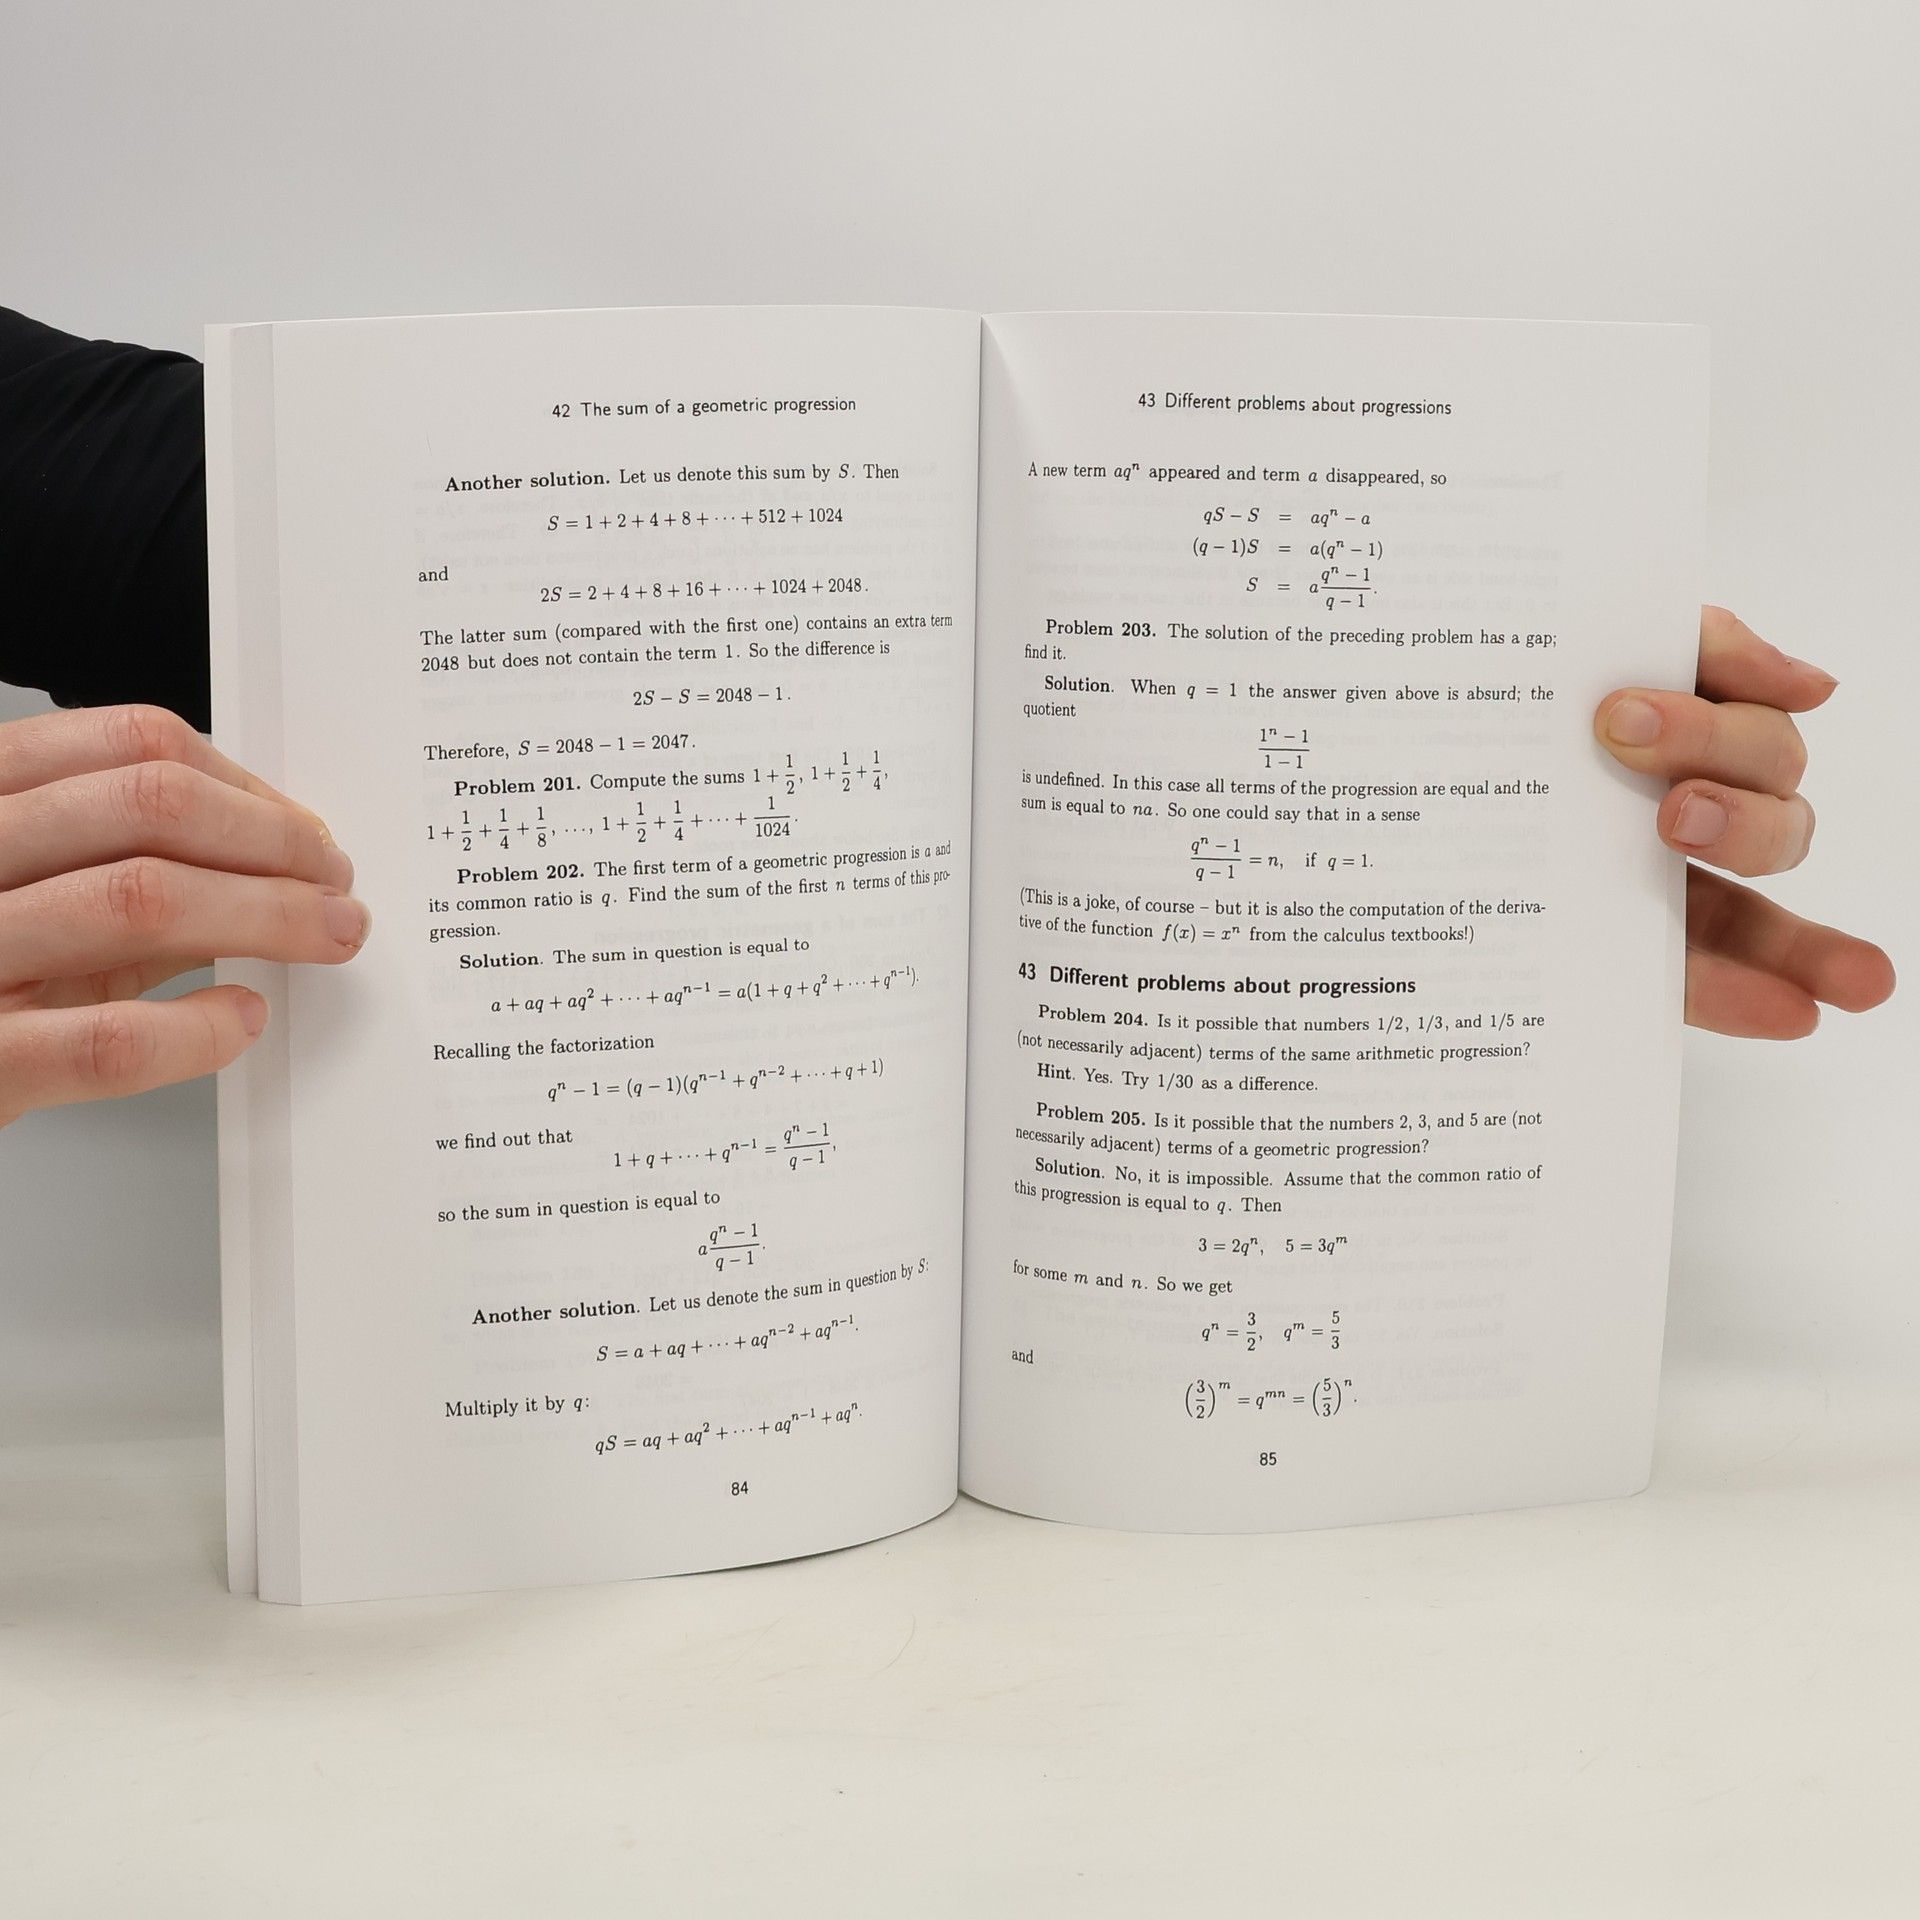 42 The sum of a geometric progression
Another solution. Let us denote this sum by S. Then
S = 1 + 2 + 4 + 8 + ··· + 512 + 1024
and
2S = 2 + 4 + 8 + 16 + ··· + 1024 + 2048.
The latter sum (compared with the first one) contains an extra term
2048 but does not contain the term 1. So the difference is
2S − S = 2048 − 1.
Therefore, S = 2048 − 1 = 2047.
Problem 201. Compute the sums 1 + 1/2, 1 + 1/2 + 1/4,
1 + 1/2 + 1/4 + 1/8, ..., 1 + 1/2 + 1/4 + ··· + 1/1024.
Problem 202. The first term of a geometric progression is a and
its common ratio is q. Find the sum of the first n terms of this pro-
gression.
Solution. The sum in question is equal to
a + aq + aq² + ··· + aqⁿ⁻¹ = a(1 + q + q² + ··· + qⁿ⁻¹).
Recalling the factorization
qⁿ − 1 = (q − 1)(qⁿ⁻¹ + qⁿ⁻² + ··· + q + 1)
we find out that
1 + q + ··· + qⁿ⁻¹ = (qⁿ − 1)/(q − 1),
so the sum in question is equal to
a (qⁿ − 1)/(q − 1).
Another solution. Let us denote the sum in question by S:
S = a + aq + ··· + aqⁿ⁻² + aqⁿ⁻¹.
Multiply it by q:
qS = aq + aq² + ··· + aqⁿ⁻¹ + aqⁿ.
84
43 Different problems about progressions
A new term aqⁿ appeared and term a disappeared, so
qS − S = aqⁿ − a
(q − 1)S = a(qⁿ − 1)
S = a (qⁿ − 1)/(q − 1).
Problem 203. The solution of the preceding problem has a gap;
find it.
Solution. When q = 1 the answer given above is absurd; the
quotient
(1ⁿ − 1)/(1 − 1)
is undefined. In this case all terms of the progression are equal and the
sum is equal to na. So one could say that in a sense
(qⁿ − 1)/(q − 1) = n, if q = 1.
(This is a joke, of course – but it is also the computation of the deriva-
tive of the function f(x) = xⁿ from the calculus textbooks!)
43 Different problems about progressions
Problem 204. Is it possible that numbers 1/2, 1/3, and 1/5 are
(not necessarily adjacent) terms of the same arithmetic progression?
Hint. Yes. Try 1/30 as a difference.
Problem 205. Is it possible that the numbers 2, 3, and 5 are (not
necessarily adjacent) terms of a geometric progression?
Solution. No, it is impossible. Assume that the common ratio of
this progression is equal to q. Then
3 = 2qⁿ, 5 = 3qᵐ
for some m and n. So we get
qⁿ = 3/2, qᵐ = 5/3
and
(3/2)ᵐ = qᵐⁿ = (5/3)ⁿ.
85